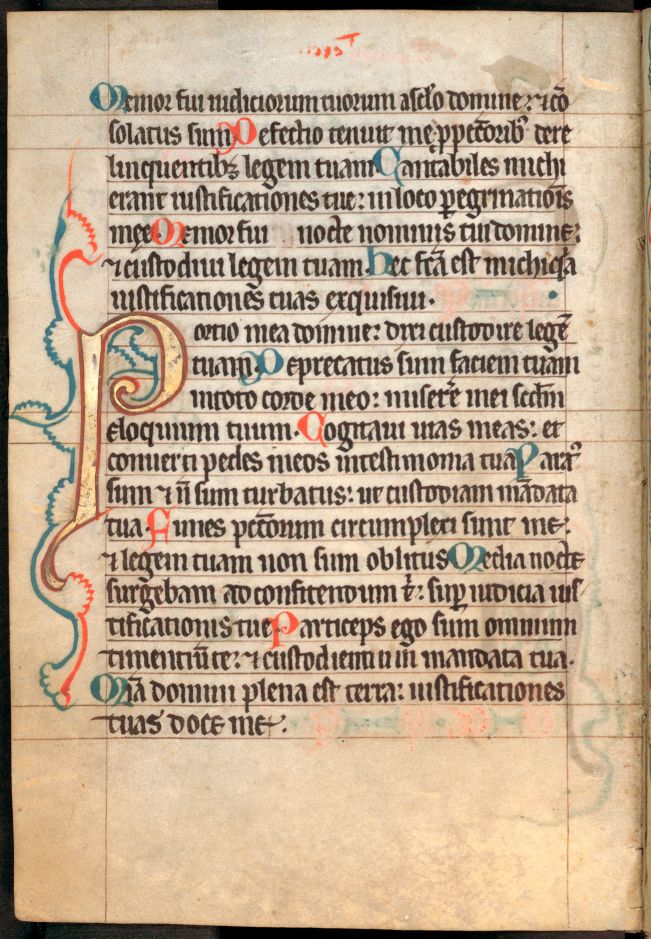 Memor fui iudiciorum tuorum aseło domine: ⁊ cō
solatus sum Defectio tenuit me ꝓ pctoribꝰ dere
linquentibꝫ legem tuam Cantabiles michi
erant iustificationes tue: in loco peg̃nationis
mee Memor fui nocte nominis tui domine:
⁊ custodiui legem tuam. hec fca est michi qa
iustificationes tuas exquisiui.
Portio mea domine: dixi custodire legē
tuam. Deprecatus sum faciem tuam
in toto corde meo: misere mei scdm
eloquium tuum. Cogitaui uias meas: et
conuerti pedes meos in testimonia tua Paratꝰ
sum ⁊ n̄ sum turbatus: ut custodiam mādata
tua. Funes pctorum circumplexi sunt me:
⁊ legem tuam non sum oblitus Media nocte
surgebam ad confitendum t̄: sup iudicia ius
tificationis tue Particeps ego sum omnium
timentiū te: ⁊ custodientiū mandata tua.
Mia domini plena est terra: iustificationes
tuas doce me.